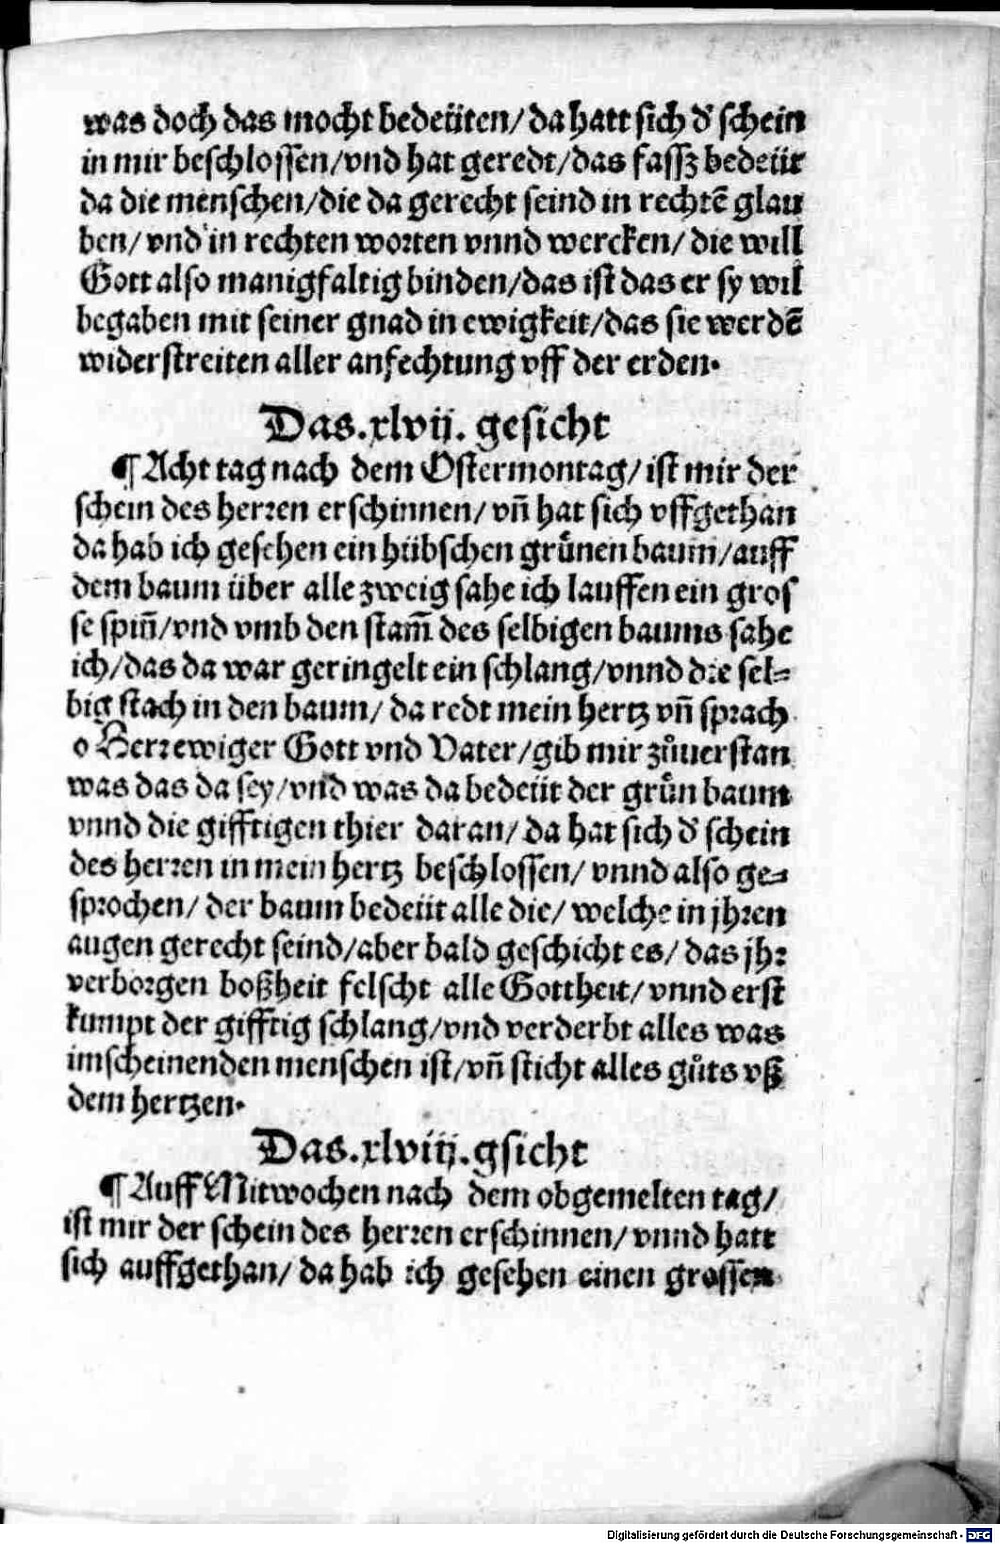 was doch das mocht bedeüten/ da hatt sich d' schein
in mir beschlossen/vnd hat geredt/das fassz bedeüt
da die menschen/die da gerecht seind in rechtē glau
ben/ vnd in rechten worten vnnd wercken/ die will
Gott also manigfaltig binden/das ist das er sy wil
begaben mit seiner gnad in ewigkeit/das sie werdē
widerstreiten aller anfechtung vff der erden.
Das.xlvij. gesicht
¶ Acht tag nach dem Ostermontag/ ist mir der
schein des herren erschinnen/ vñ hat sich vffgethan
da hab ich gesehen ein hübschen grůnen baum/auff
dem baum über alle zweig sahe ich lauffen ein gros
se spiñ/vnd vmb den stam̄ des selbigen baums sahe
ich/das da war geringelt ein schlang/vnnd die sel=
big stach in den baum/ da redt mein hertz vñ sprach
o Herr ewiger Gott vnd Vater/gib mir zůuerstan
was das da sey/vnd was da bedeüt der grůn baum
vnnd die gifftigen thier daran/ da hat sich d' schein
des herren in mein hertz beschlossen/ vnnd also ge=
sprochen/ der baum bedeüt alle die/ welche in jhren
augen gerecht seind/aber bald geschicht es/ das jhr
verborgen boßheit felscht alle Gottheit/vnnd erst
kumpt der gifftig schlang/vnd verderbt alles was
im scheinenden menschen ist/vñ sticht alles gůts vß
dem hertzen.
Das.xlviij.gsicht
¶ Auff Mitwochen nach dem obgemelten tag/
ist mir der schein des herren erschinnen/ vnnd hatt
sich auffgethan/ da hab ich gesehen einen grossen
Digitalisierung gefördert durch die Deutsche Forschungsgemeinschaft - DFG